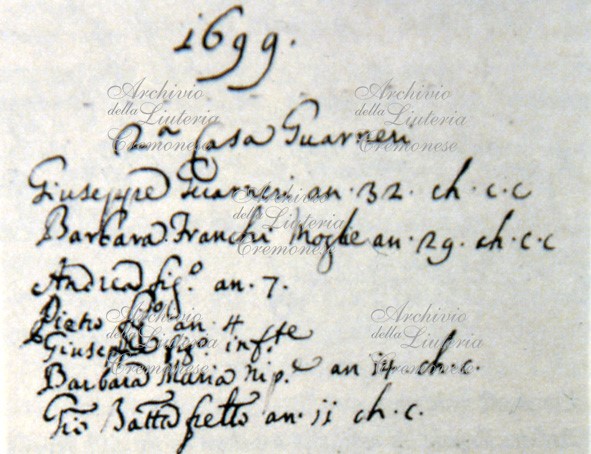 1699.
Casa Guarneri
Giuseppe Guarneri an. 32. ch. c. c
Barbara Franchi Moglie an. 29. ch. c. c
Andrea fig.º an. 7.
Pietro fig.º an. 4
Giuseppe fig.º inf.te
Barbara Maria Nip.e an 14 ch. c.
Gio Batta an. 11 ch. c.
Archivio
della Liuteria
Cremonese
Archivio
della Liuteria
Cremonese
Archivio
della Liuteria
Cremonese
Archivio
della Liuteria
Cremonese
Archivio
della Liuteria
Cremonese